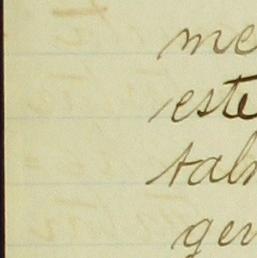 me
este
tal
ger